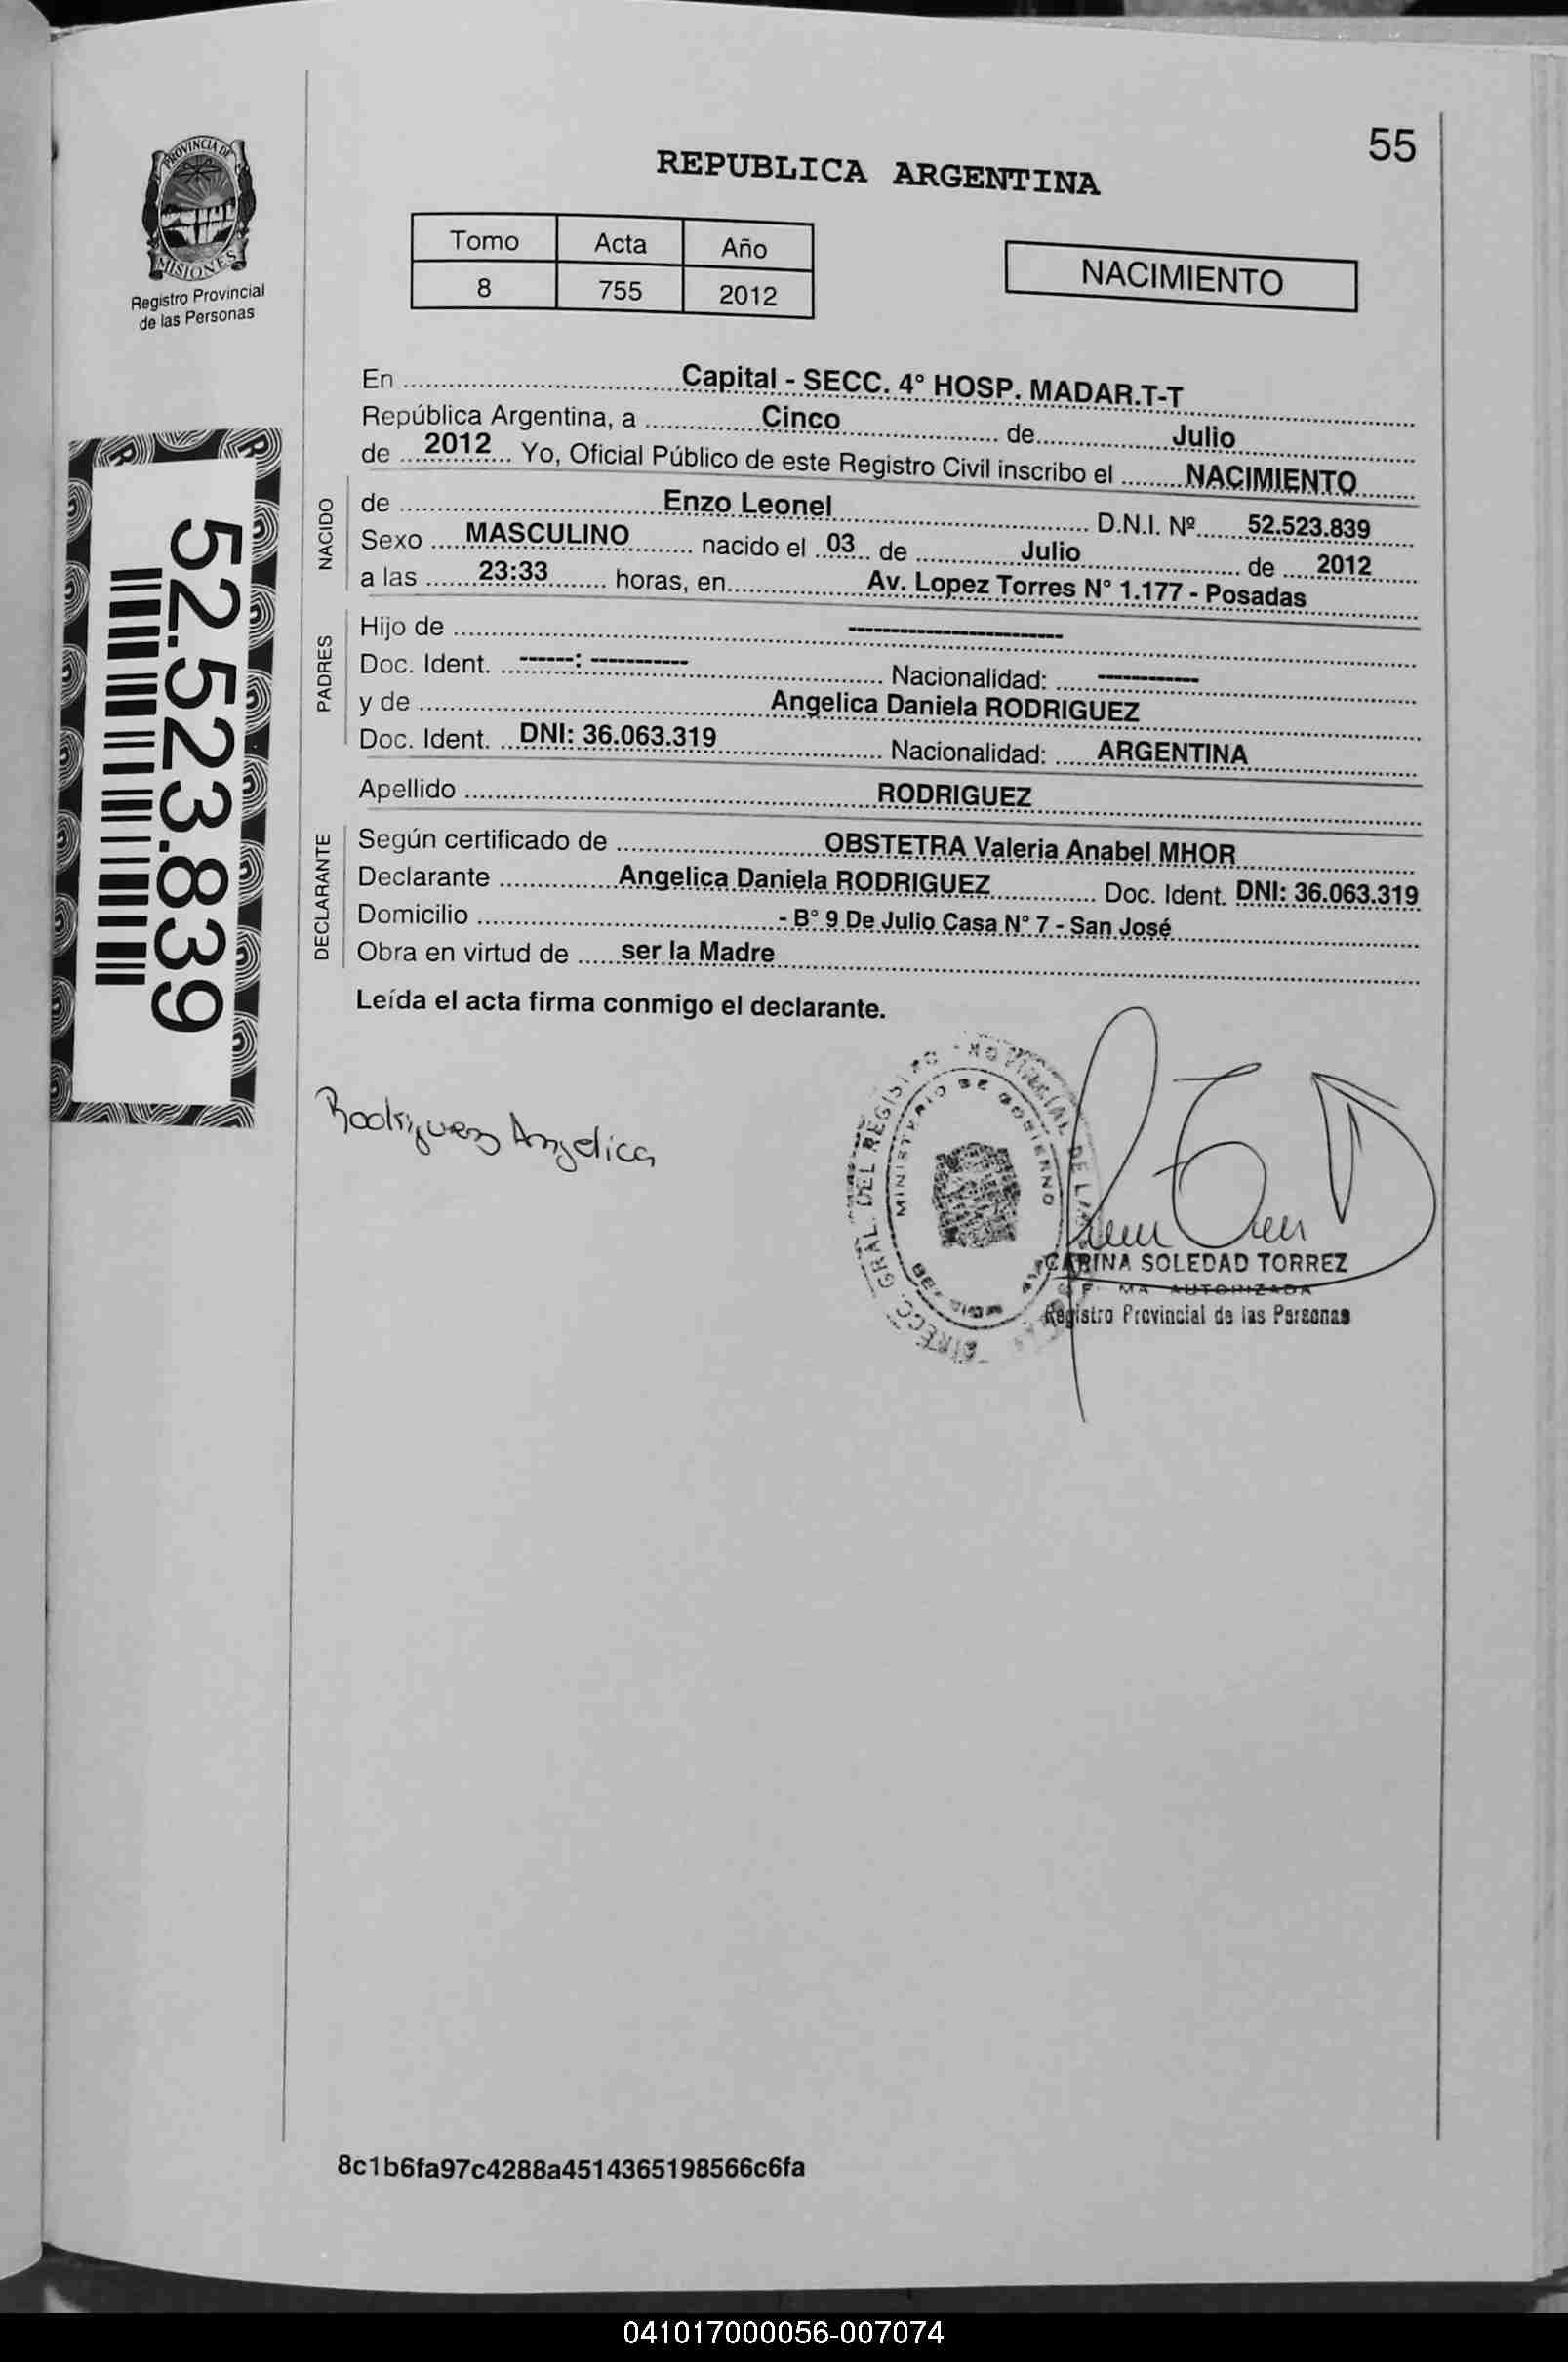 55
REPUBLICA ARGENTINA
PROVINCIA DE
MISIONES
Registro Provincial
de las Personas
Tomo Acta Año
8 755 2012
NACIMIENTO
En .......... Capital - SECC. 4° HOSP. MADAR.T-T
República Argentina, a .......... Cinco .......... de .......... Julio
de ... 2012 ... Yo, Oficial Público de este Registro Civil inscribo el .......... NACIMIENTO
NACIDO
de .......... Enzo Leonel .......... D.N.I. Nº ...... 52.523.839
Sexo .... MASCULINO ........ nacido el .. 03 .. de .......... Julio .......... de .... 2012
a las ...... 23:33 ........ horas, en .......... Av. Lopez Torres N° 1.177 - Posadas
PADRES
Hijo de .......... -------------------------
Doc. Ident. .. ------: ----------- .......... Nacionalidad: ..... ------------
y de .......... Angelica Daniela RODRIGUEZ
Doc. Ident. .. DNI: 36.063.319 .......... Nacionalidad: ..... ARGENTINA
Apellido .......... RODRIGUEZ
DECLARANTE
Según certificado de .......... OBSTETRA Valeria Anabel MHOR
Declarante .......... Angelica Daniela RODRIGUEZ .......... Doc. Ident. DNI: 36.063.319
Domicilio .......... - B° 9 De Julio Casa N° 7 - San José
Obra en virtud de ..... ser la Madre
Leída el acta firma conmigo el declarante.
52.523.839
Rodriguez Angelica
DIRECC. GRAL. DEL REGISTRO PROVINCIAL DE LAS
MINISTERIO DE GOBIERNO
CARINA SOLEDAD TORREZ
AUTORIZADA
Registro Provincial de las Personas
8c1b6fa97c4288a4514365198566c6fa
041017000056-007074